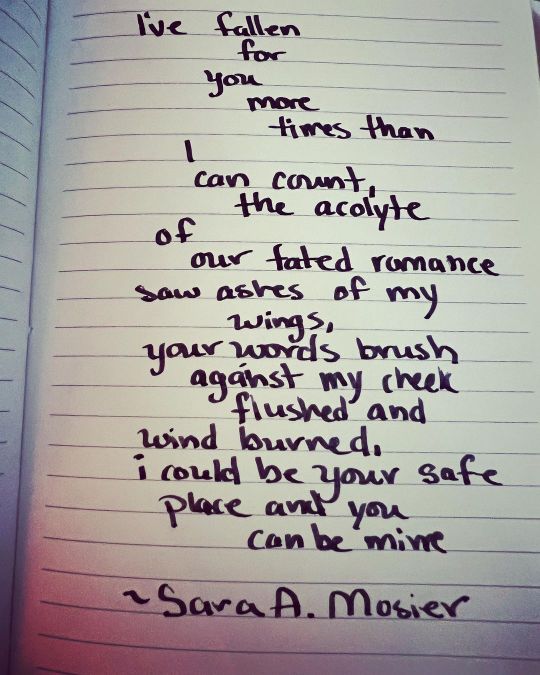 I've fallen
for
you
more
times than
I
can count,
the acolyte
of
our fated romance
saw ashes of my
wings,
your words brush
against my cheek
flushed and
wind burned,
i could be your safe
place and you
can be mine
~Sara A. Mosier